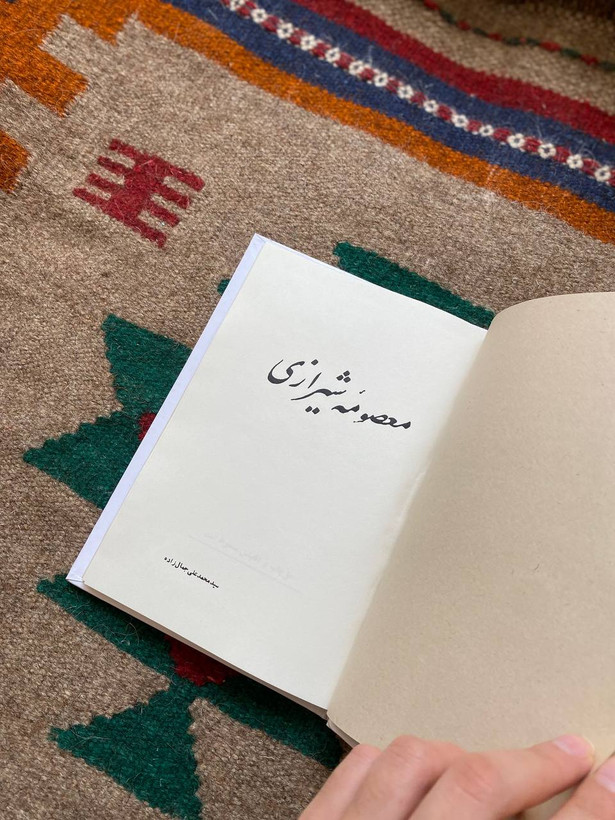 معصومهٔ شیرازی
سید محمد علی جمال زاده